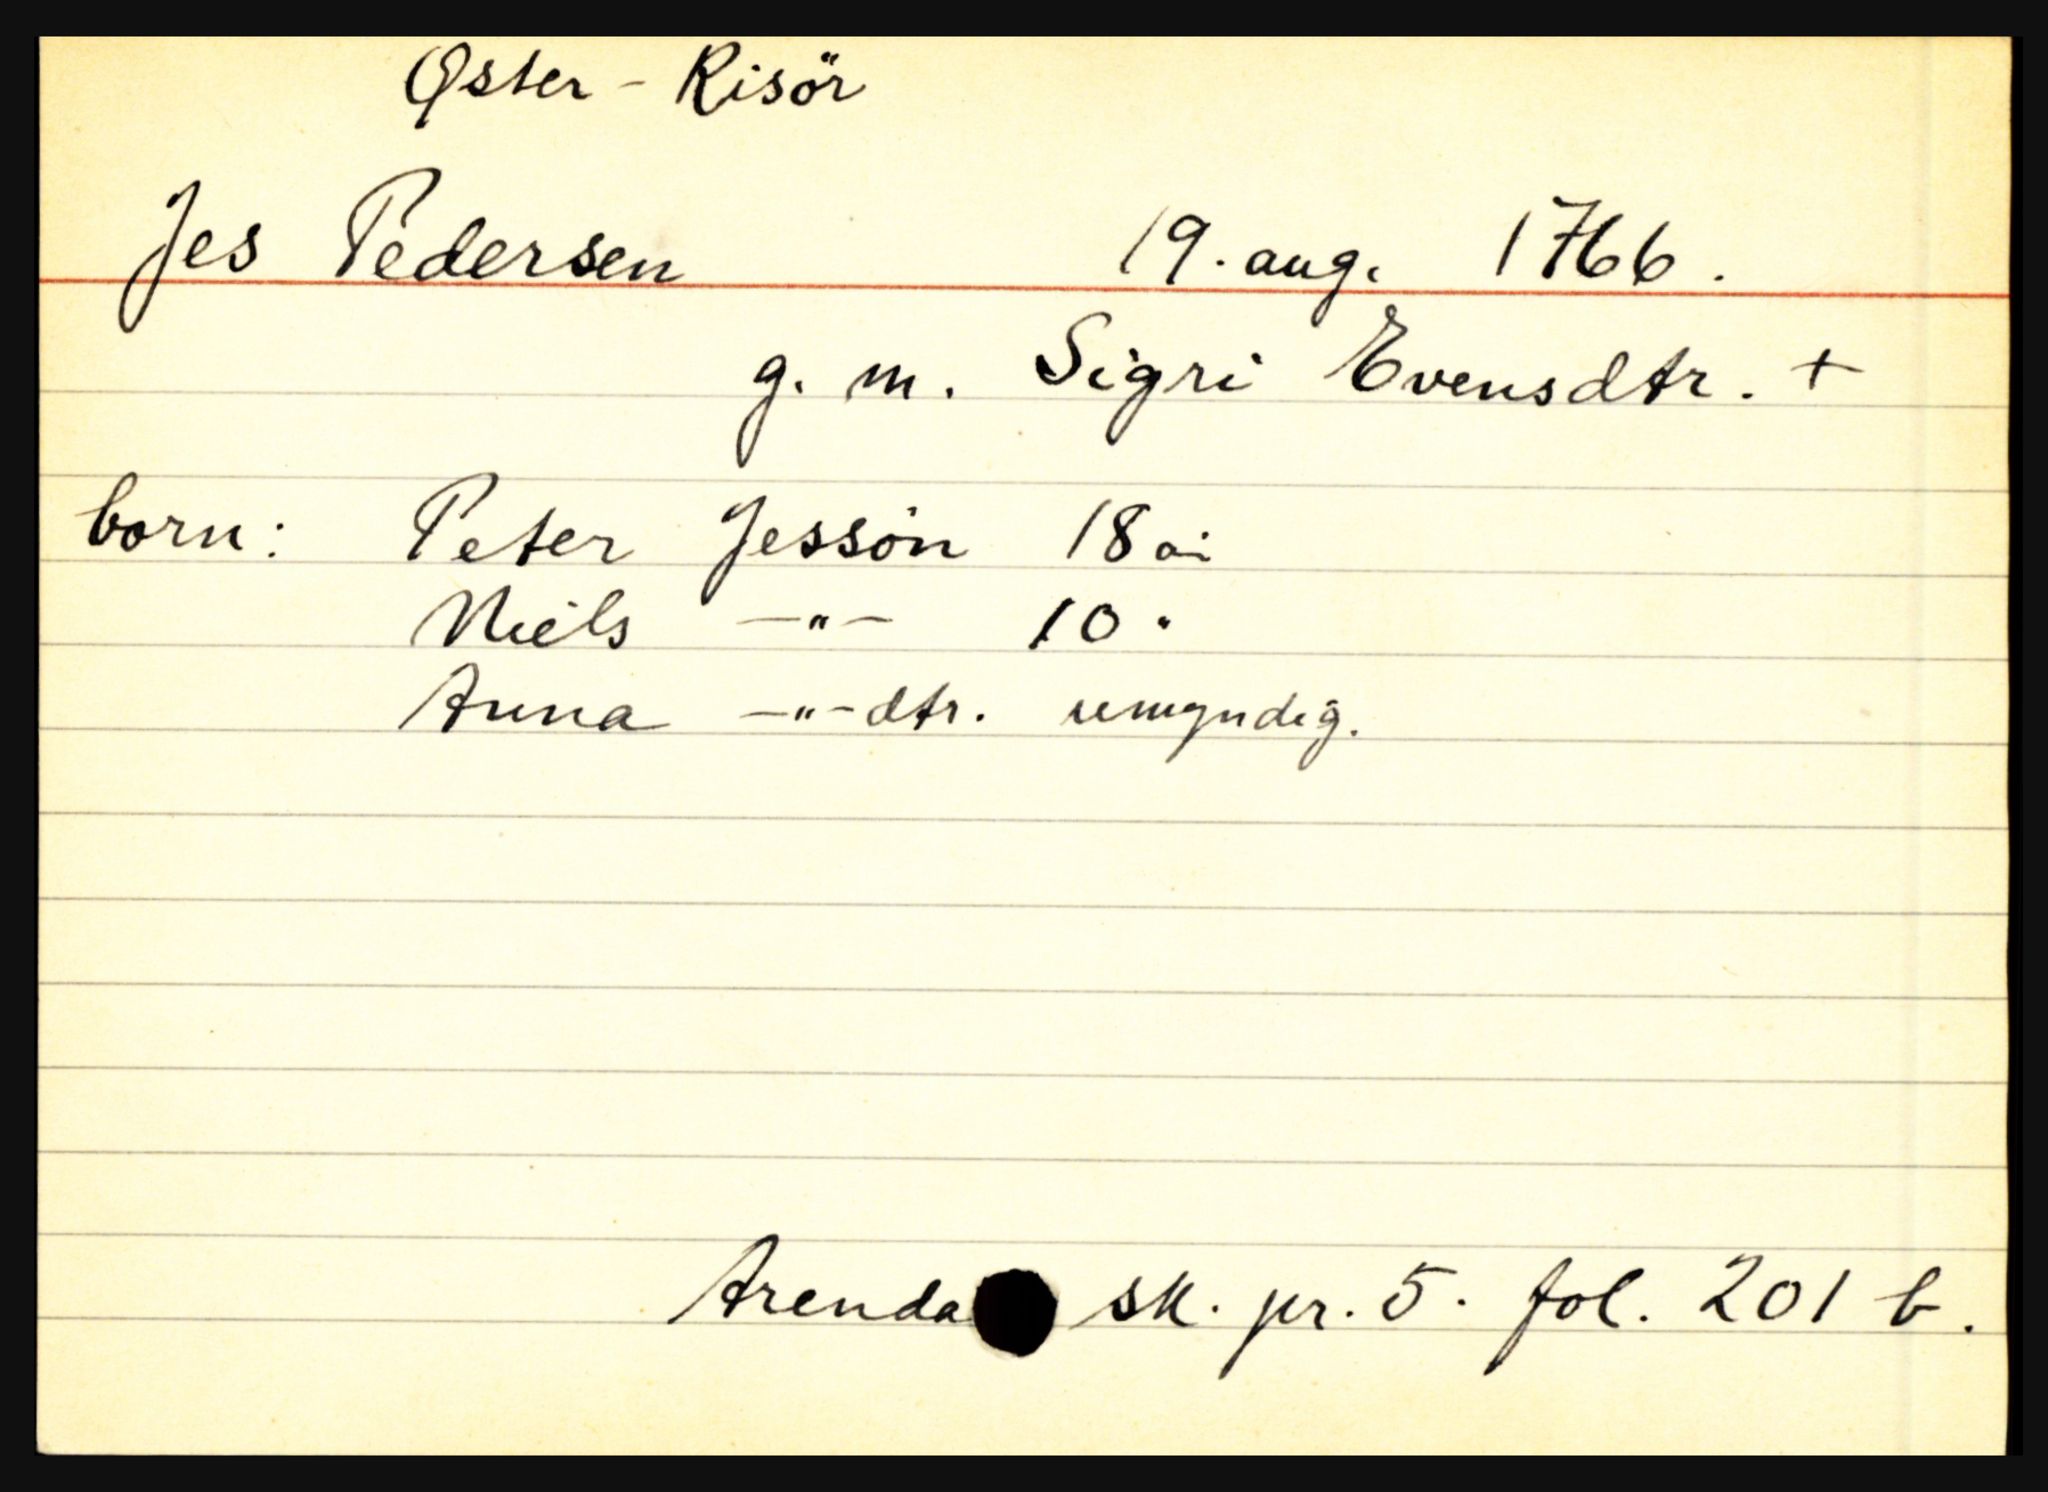 Øster - Risör
Jes Pedersen 19. aug. 1766.
g. m. Sigri Evensdtr. +
born: Peter Jessön 18 år
Niels —"— 10 "
Anna —"—dtr. umyndig.
Arenda sk. pr. 5. fol. 201 b.